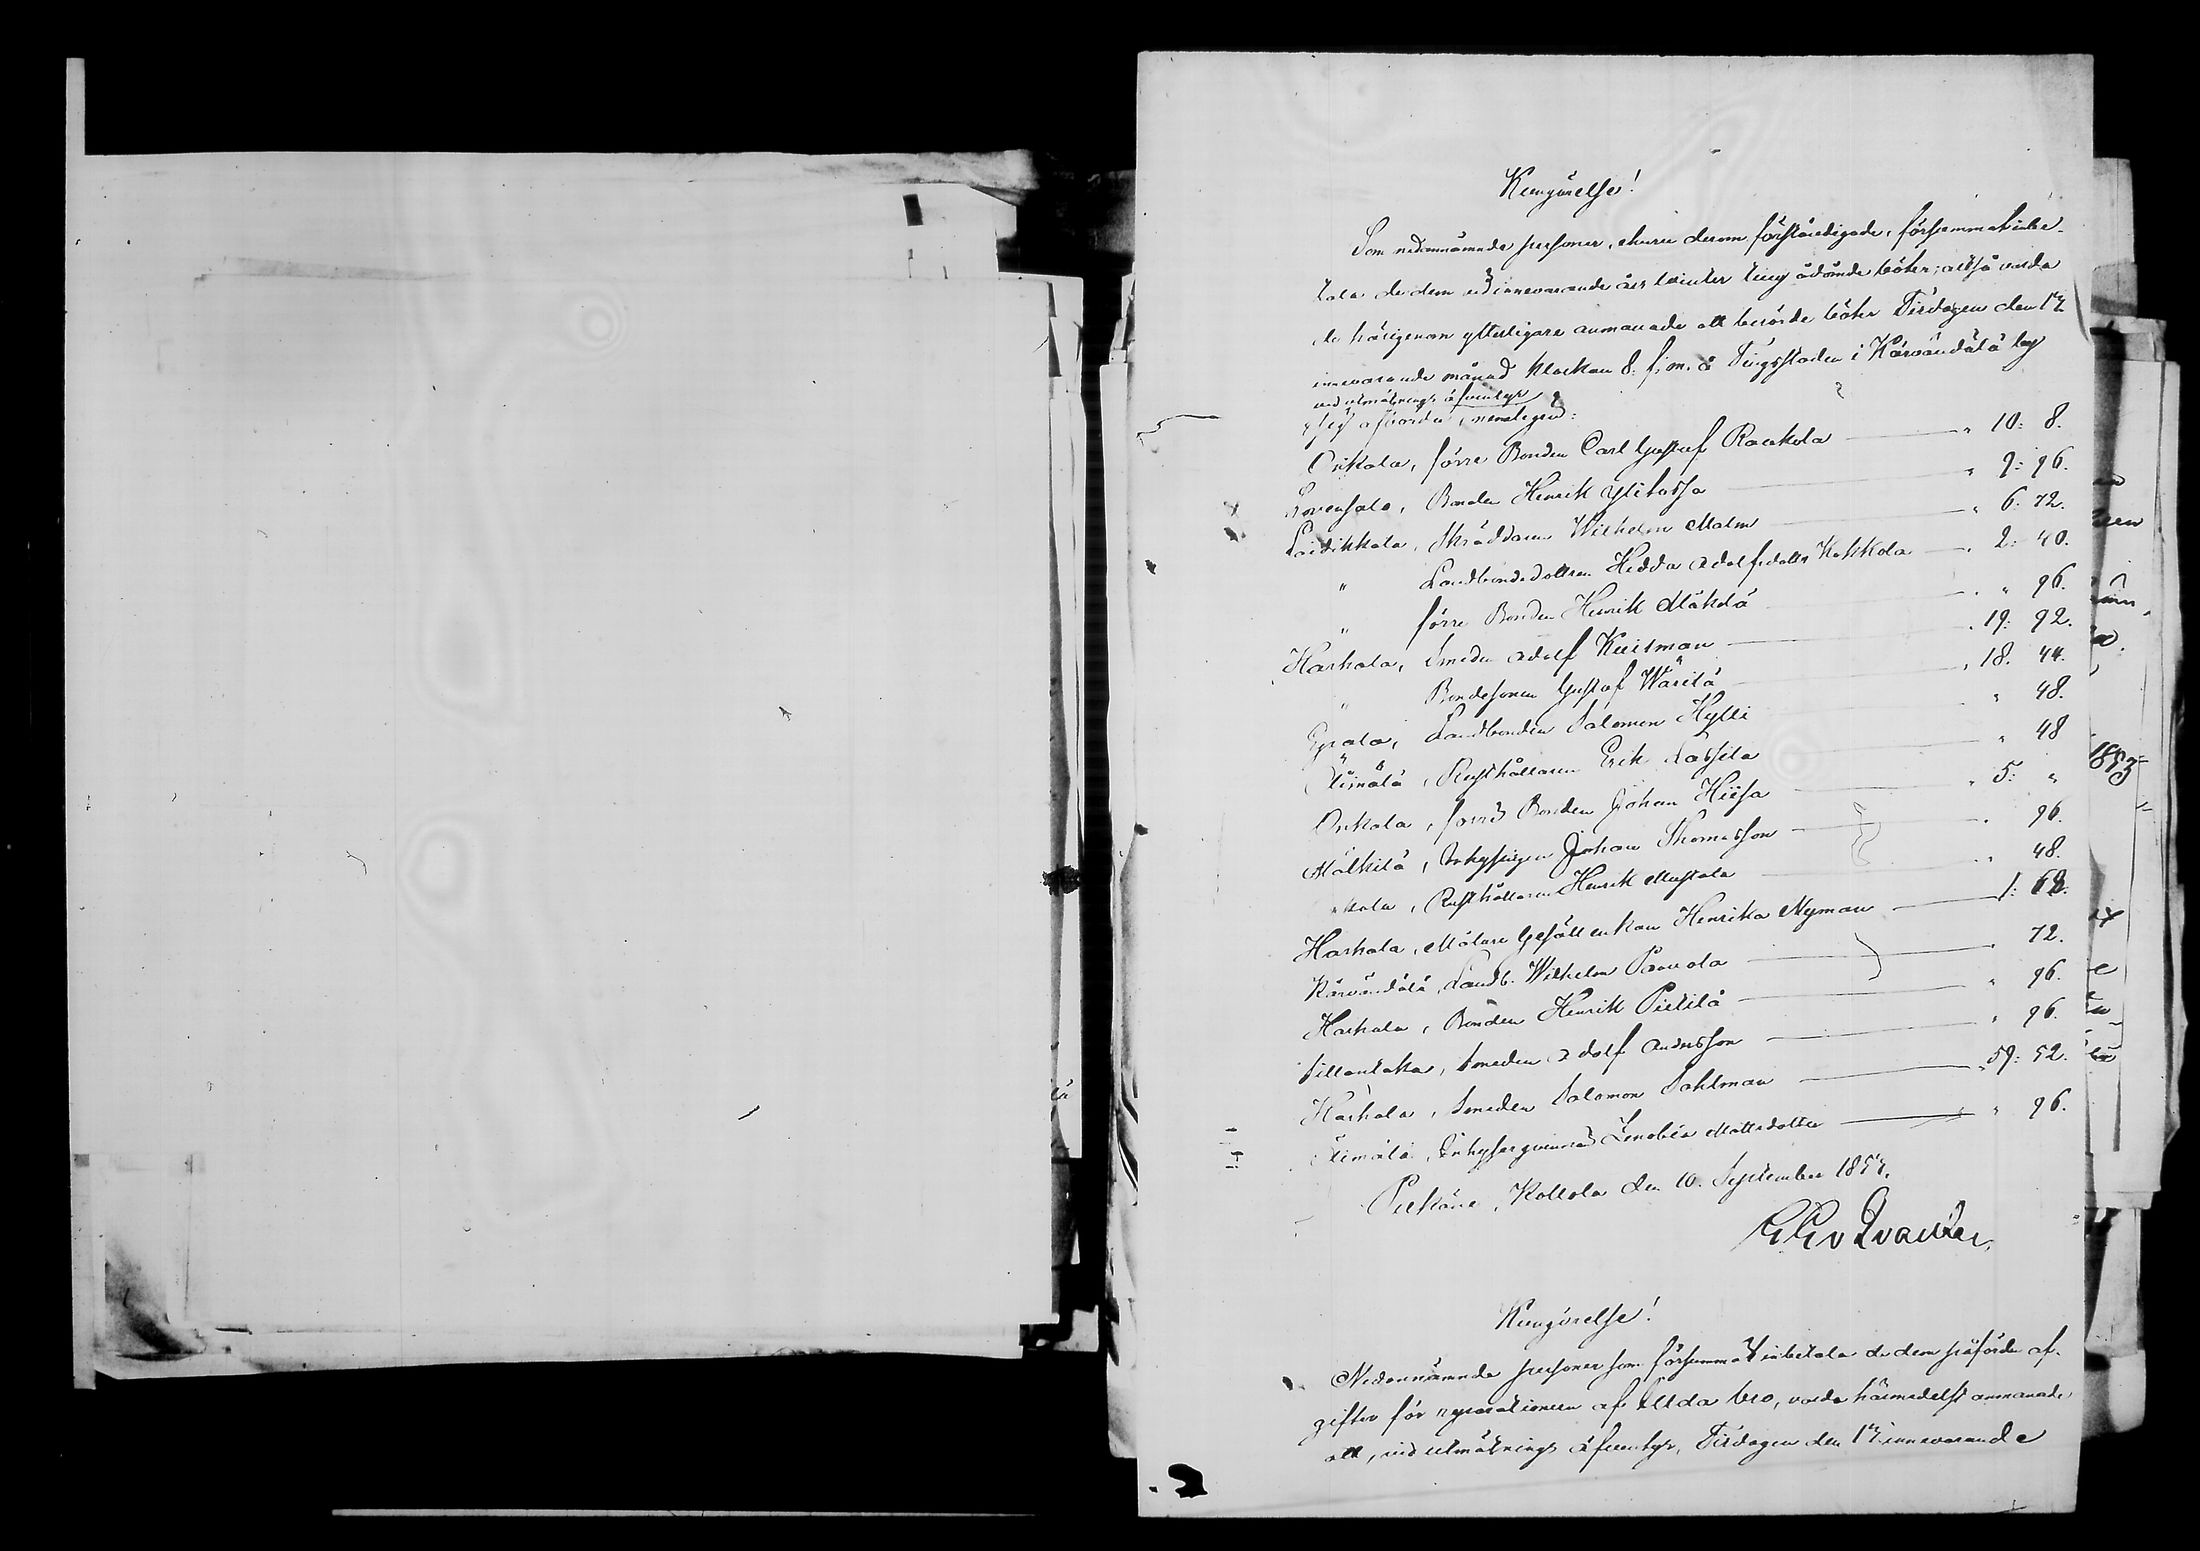 Kungörelse!
Som nedannämnde personer, ehuru derom förständigade, försummat inbe-
tala de dem vid innevarande års winter ting ådömde böter; altså varda
de härigenom ytterligare anmanade att berörde böter Tisdagen den 15
innevarande månad klockan 8. f.m. å Tingsstaden i Kärvändälä by
vid utmätnings äfventyr
afbörda, nemligen:
Onkala, förre Bonden Carl Gustaf Raukola " 10: 8.
Bonden Henrik Ylitassa " 9: 96.
Laitikkala, Skräddaren Wilhelm Malm " 6. 72.
" Landbondedottren Hedda Adolfsdotter Kokkola " 2: 40.
" förre Bonden Henrik Mäkelä " " 96.
Harhala, Smeden Adolf Kuisman " 19: 92.
" Bondesonen Gustaf Wärilä " 18. 44.
Epaala, Landbonden Salomon Hylli " 48.
Älimälä, Rusthållaren Erik Lassila " 48
Onkala, förre Bonden Johan Hiisa " 5: "
Mälkilä, Inhysingen Johan Thomasson " 96.
Rusthållaren Henrik Mustala " 48.
Harhala, Målare Gesäll enkan Henrika Nyman 1: 68.
Kärvändälä, Landb. Wilhelm Paavola " 72.
Harhala, Bonden Henrik Pietilä " 96.
Sillantaka, Smeden Adolf Andersson " 96.
Harhala, Smeden Salomon Sahlman " 59: 52.
Älimälä, Inhysesqvinnan Zenobia Mattsdotter " 96.
Pelkäne, Kollola den 10. September 1855.
Kungörelse!
Nedannämnde personer som försummat inbetala de dem påförde af-
gifter för reparationen af Ellda bro, varda härmedelst anmanade
att, vid utmätnings äfventyr, Tisdagen den 15 innevarande
1853